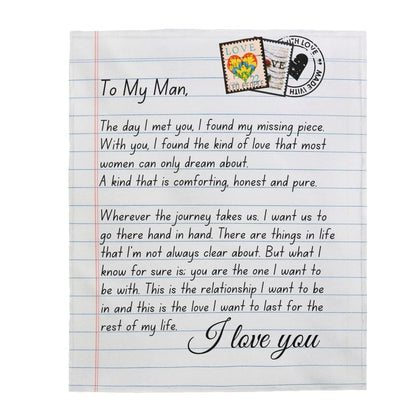 LOVE
VE
WITH LOVE
MADE WITH
To My Man,
The day I met you, I found my missing piece.
With you, I found the kind of love that most
women can only dream about.
A kind that is comforting, honest and pure.
Wherever the journey takes us. I want us to
go there hand in hand. There are things in life
that I'm not always clear about. But what I
know for sure is; you are the one I want to
be with. This is the relationship I want to be
in and this is the love I want to last for the
rest of my life.
I love you